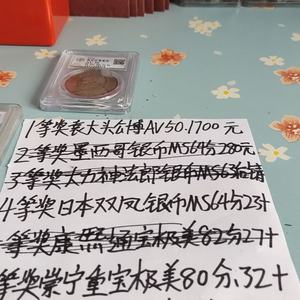 1等奖袁大头公博AV50.1700元
2等奖墨西哥银币MS64分280元
3等奖大力神法郎银币MS63
4等奖日本双凤银币MS64分23+
等奖康熙通宝极美82分27+
等奖崇宁重宝极美80分、32+